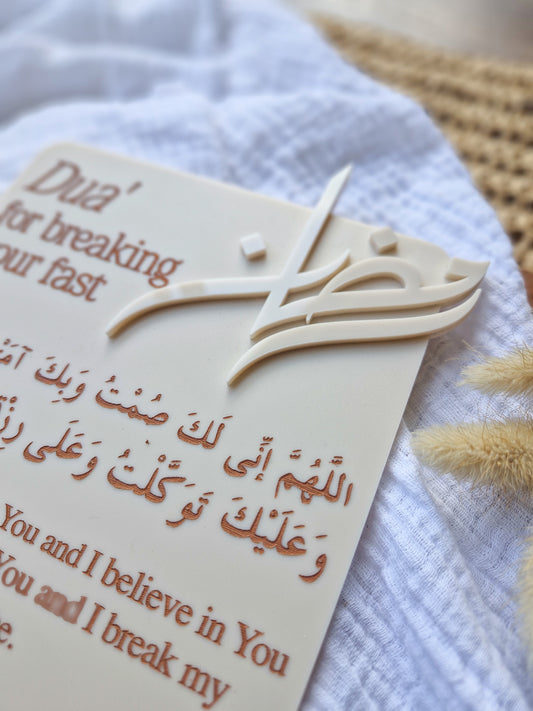 Dua'
for breaking
our fast
اللَّهُمَّ إِنِّي لَكَ صُمْتُ وَبِكَ
وَعَلَيْكَ تَوَكَّلْتُ وَعَلَى
You and I believe in You
You and I break my